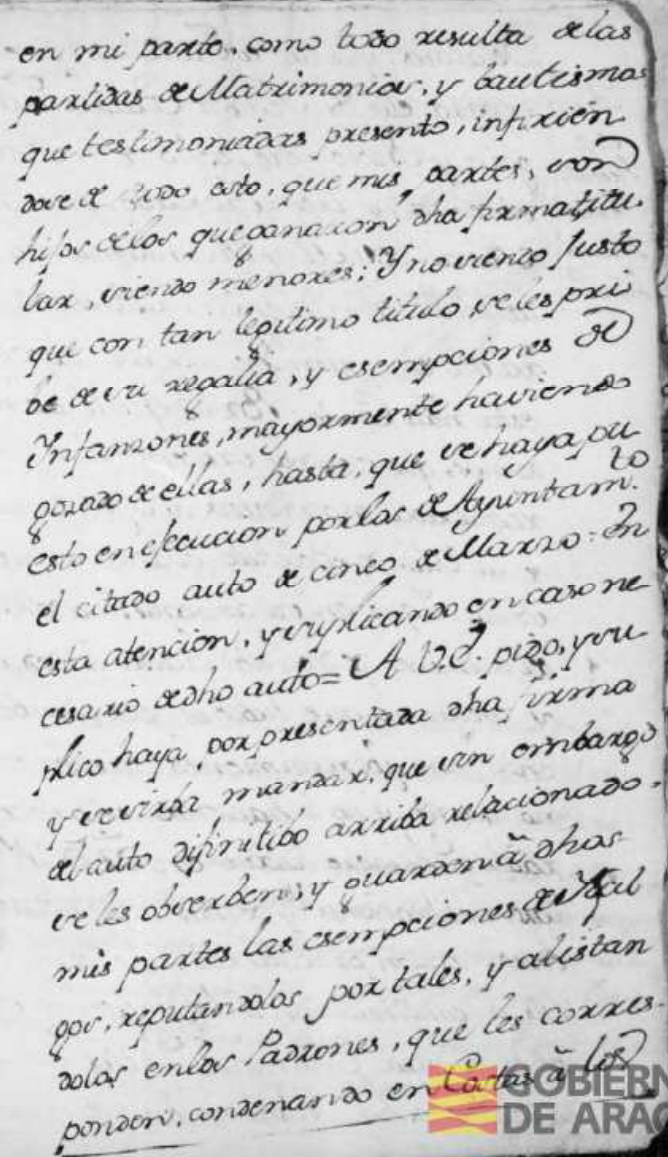 en mi parte, como todo resulta de las
partidas de Matrimonios, y bautismos
que testimoniadas presento, infirien
dose de todo esto, que mis partes, son
hijos de los que ganaron dha firma titu
lar, siendo menores; Y no siendo Justo
que con tan legitimo titulo, se les pri
be de su regalia, y esempciones de
Infanzones, mayormente haviendo
gozado de ellas, hasta, que se haya pu
esto en ejecucion por los de Ayuntam.to
el citado auto de cinco de Marzo: En
esta atencion, y suplicando en caso ne
cesario de dho auto = A V.E. pido, y su
plico haya, por presentada dha firma
y se sirba mandar, que sin embargo
del auto difinitibo arriba relacionado.
se les obserben, y guarden â dhos
mis partes las esempciones de Ydal
gos, reputandolos por tales, y alistan
dolos en los Padrones, que les corres-
ponden, condenando en Costas â los
GOBIERN
DE ARAG